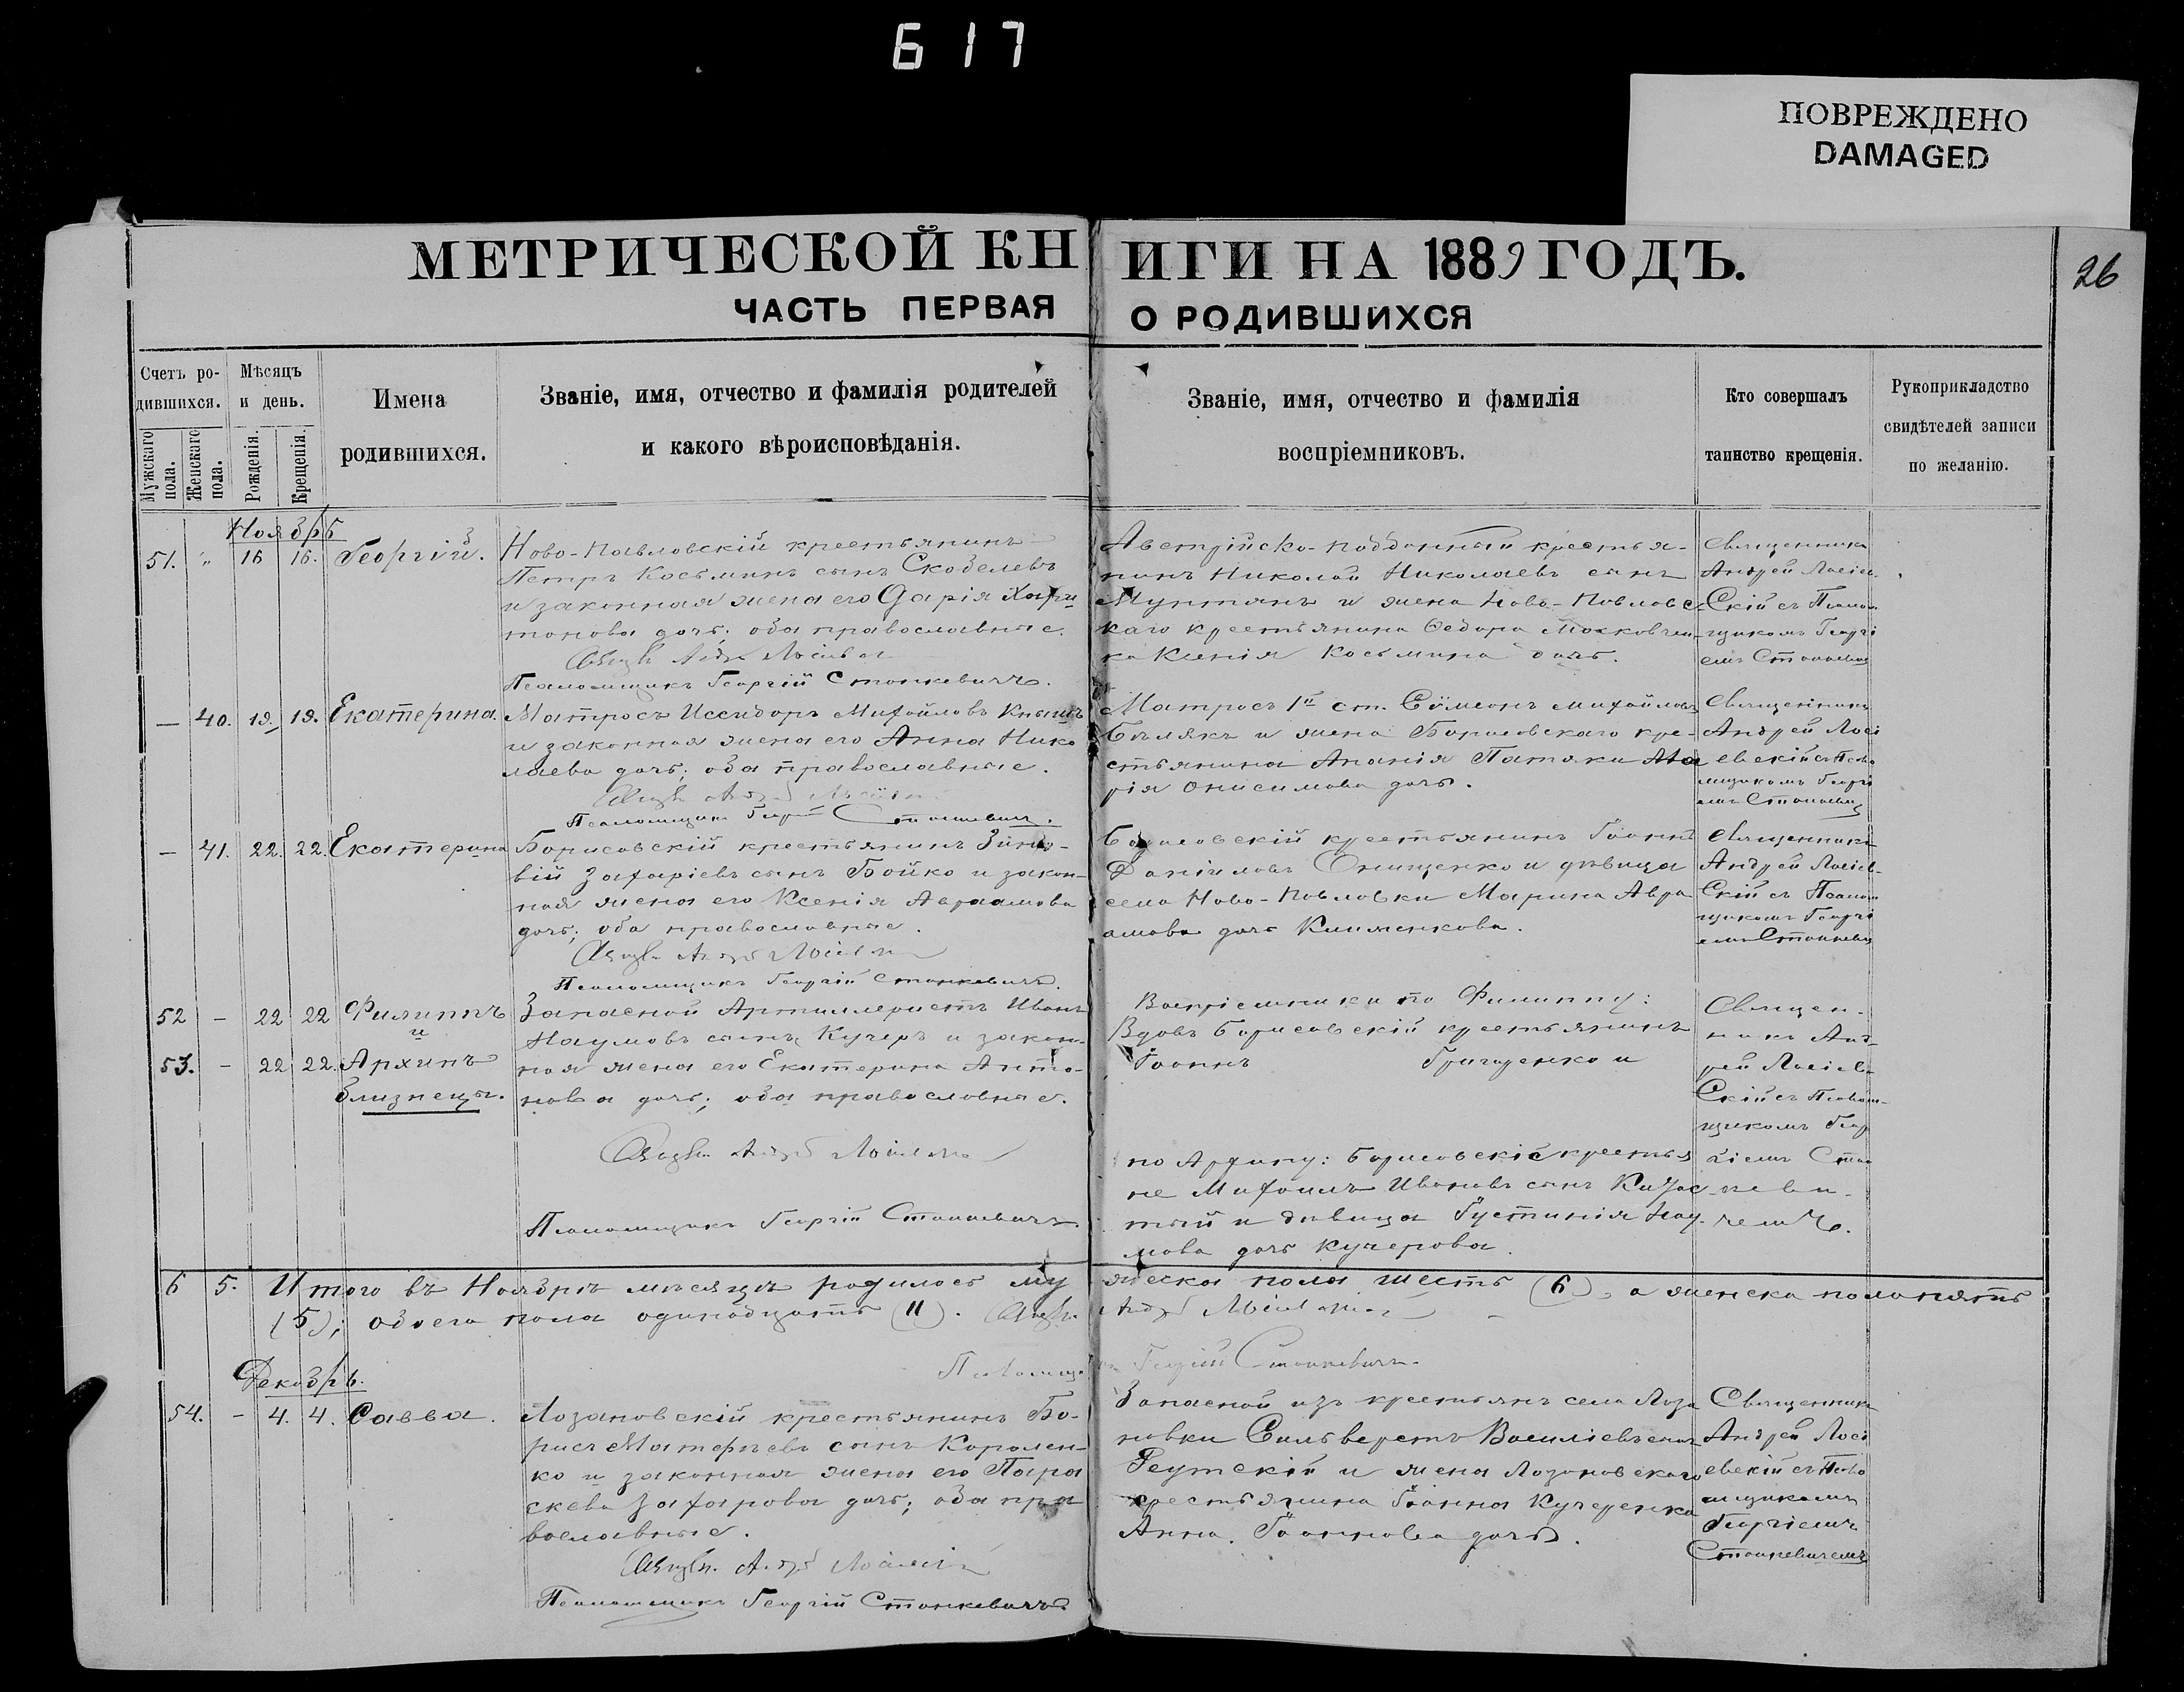 617
ПОВРЕЖДЕНО
DAMAGED
26
МЕТРИЧЕСКОЙ КНИГИ НА 1889 ГОДЪ.
ЧАСТЬ ПЕРВАЯ О РОДИВШИХСЯ
Счетъ ро-
дившихся.
Мужскаго пола.
Женскаго пола.
Мѣсяцъ
и день.
Рожденія.
Крещенія.
Имена
родившихся.
Званіе, имя, отчество и фамилія родителей
и какого вѣроисповѣданія.
Званіе, имя, отчество и фамилія
воспріемниковъ.
Кто совершалъ
таинство крещенія.
Рукоприкладство
свидѣтелей записи
по желанію.
Ноябрь
51. " 16 16. Георгій.
Ново-Павловскій крестьянинъ
Петръ Косьминъ сынъ Скобелевъ
и законная жена его Дарія Хари
тонова дочь; оба православные.
Псаломщикъ Георгій Станкевичъ.
Австрійско-подданный крестья-
нинъ Николай Николаевъ сынъ
Мунтянъ и жена Ново-Павловс
каго крестьянина Ѳедора Московчен-
ка Ксенія Косьмина дочь.
Священникъ
Андрей Лосіев-
скій съ Псалом
щикомъ Георгі
емъ Станкевич
— 40. 19. 19. Екатерина.
Матросъ Исидоръ Михайловъ Кнышъ
и законная жена его Анна Нико
лаева дочь; оба православные.
Псаломщикъ Георгій Станкевичъ.
Матросъ 1й ст. Сѵмеонъ Михайловъ
Бѣлякъ и жена Борисовскаго кре-
стьянина Ананія Патяки Ма
рія Онисимова дочь.
Священникъ
Андрей Лосі
евскій съ Псало
мщикомъ Георгі
емъ Станкевич
— 41. 22. 22. Екатерина
Борисовскій крестьянинъ Зино-
вій Захаріевъ сынъ Бойко и закон-
ная жена его Ксенія Авраамова
дочь; оба православные.
Псаломщикъ Георгій Станкевичъ.
Борисовскій крестьянинъ Іоаннъ
Даніиловъ Онищенко и дѣвица
села Ново-Павловки Марина Авра
амова дочь Клименкова.
Священникъ
Андрей Лосіев-
скій съ Псалом
щикомъ Георгі
емъ Станкевич
52 — 22 22 Филиппъ
и
53. — 22 22. Архипъ
близнецы.
Запасной Артиллеристъ Иванъ
Наумовъ сынъ Кучеръ и закон-
ная жена его Екатерина Анто-
нова дочь; оба православные.
Псаломщикъ Георгій Станкевичъ.
Воспріемники по Филиппу:
Вдовъ Борисовскій крестьянинъ
Іоаннъ Григоренко и
по Архипу: Борисовскіе крестья
не Михаилъ Ивановъ сынъ
и дѣвица Іустинія Нау-
мова дочь Кучерова.
Священ-
никъ Анд-
рей Лосіев-
скій съ Псалом-
щикомъ Геор
гіемъ Стан
кеви-
чемъ.
6 5. Итого въ Ноябрѣ мѣсяцѣ родилось мужеска пола шесть (6), а женска пола пять
(5); обоего пола одинадцать (11).
Георгій Станкевичъ.
Декабрь.
54. — 4. 4. Савва.
Лозановскій крестьянинъ Бо-
рисъ сынъ Королен-
ко и законная жена его Пара
скева Захарова дочь; оба пра
вославные.
Псаломщикъ Георгій Станкевичъ
Запасной изъ крестьянъ села Лоза
новки Сильверстъ Василіевъ сынъ
Реутскій и жена Лозановскаго
крестьянина Іоанна Кучеренка
Анна Іоаннова дочь.
Священникъ
Андрей Лосі
евскій съ Псало
мщикомъ
Георгіемъ
Станкевичемъ